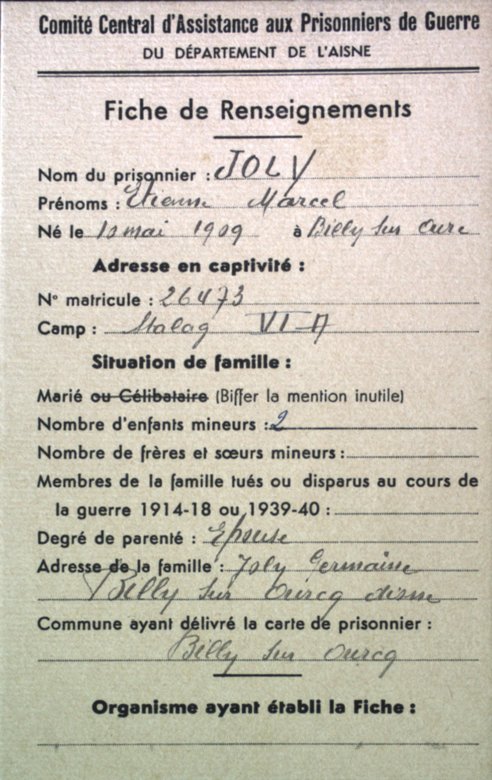 Comité Central d'Assistance aux Prisonniers de Guerre
DU DÉPARTEMENT DE L'AISNE
Fiche de Renseignements
Nom du prisonnier : JOLY
Prénoms : Etienne Marcel
Né le 10 mai 1909 à Billy sur Ourc
Adresse en captivité :
N° matricule : 26473
Camp : Stalag VI-A
Situation de famille :
Marié ou Célibataire (Biffer la mention inutile)
Nombre d'enfants mineurs : 2
Nombre de frères et sœurs mineurs :
Membres de la famille tués ou disparus au cours de
la guerre 1914-18 ou 1939-40 :
Degré de parenté : Epouse
Adresse de la famille : Joly Germaine
Billy sur Ourcq Aisne
Commune ayant délivré la carte de prisonnier :
Billy sur Ourcq
Organisme ayant établi la Fiche :